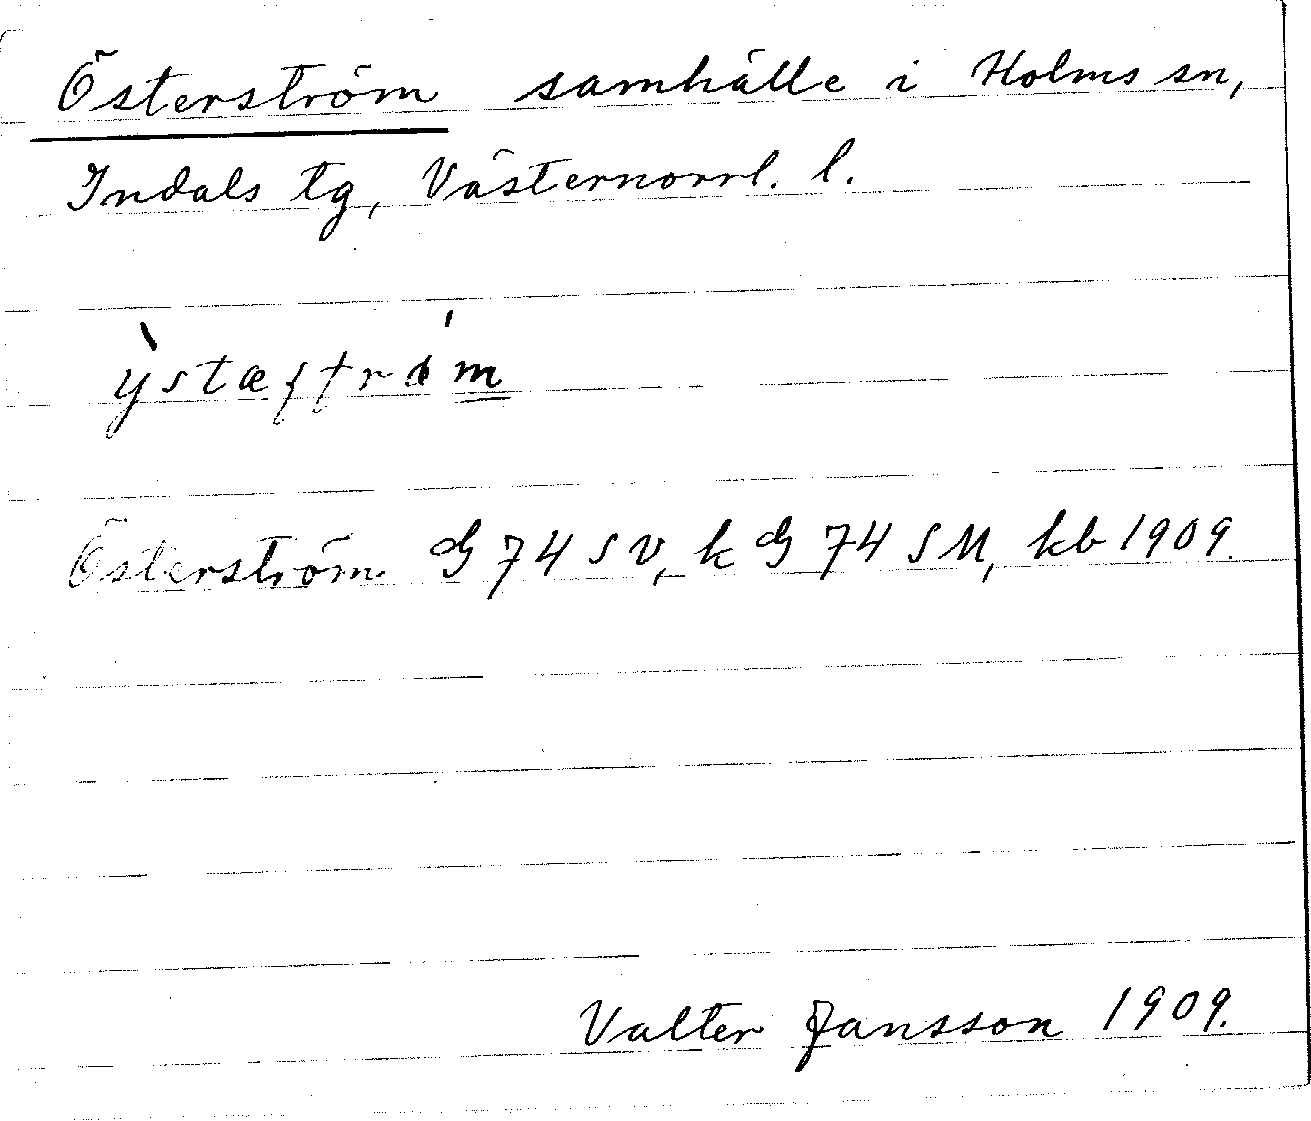 Österström samhälle i Holms sn,
Indals tg, Västernorrl. l.
ỳstæʃtrǿm
Österström G 74 SV, k G 74 SM, kb 1909.
Valter Jansson 1909.